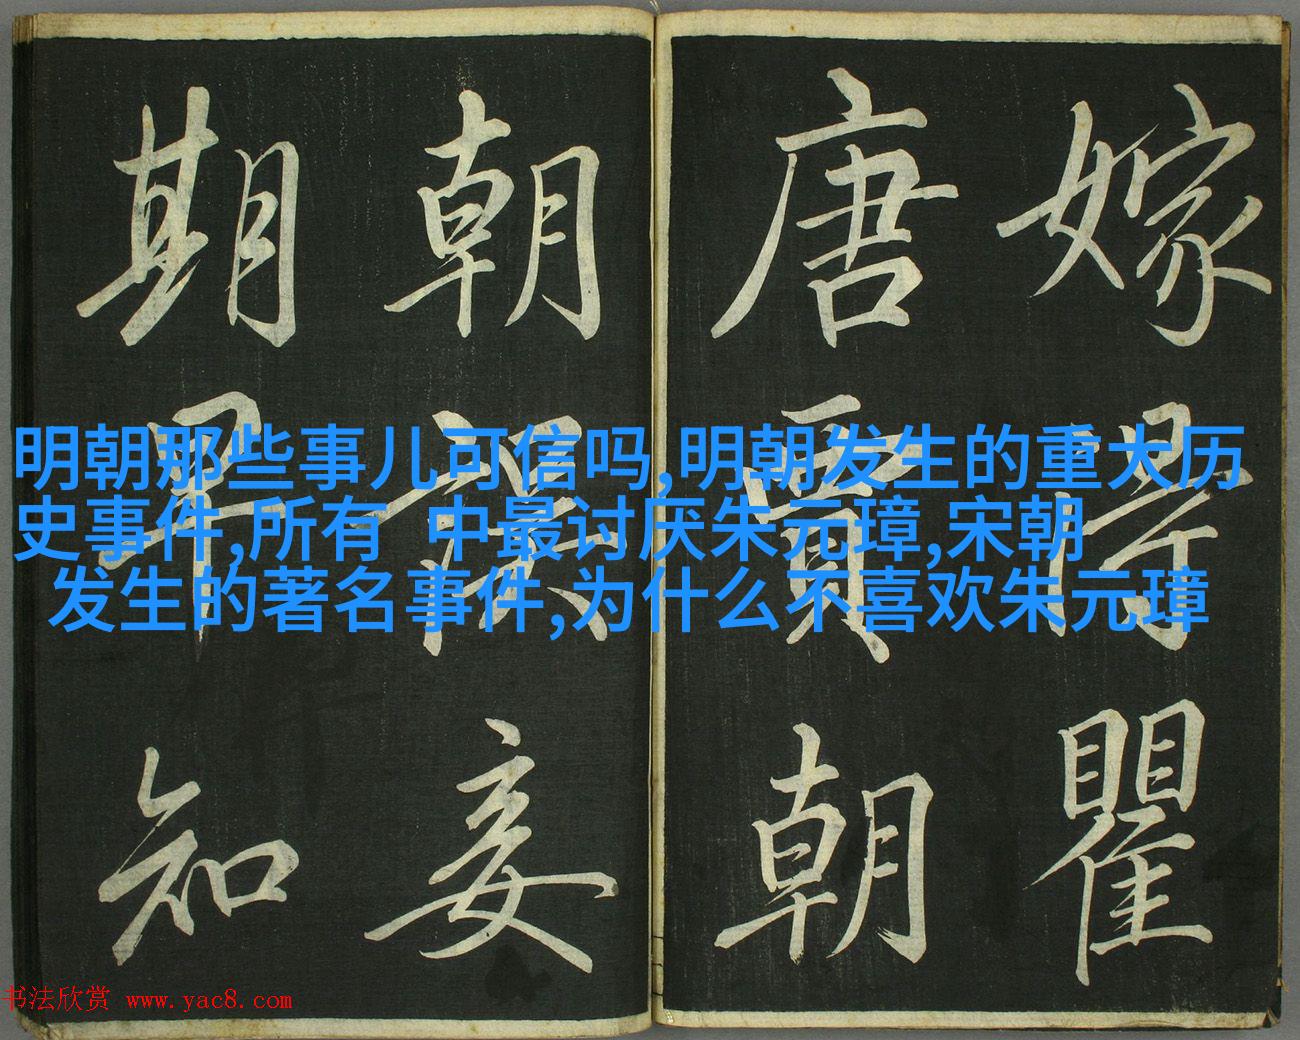 嫁得瞿
唐賈朝
朝誤妾
期早知
明朝那些事儿可信吗,明朝发生的重大历
史事件,所有 中最讨厌朱元璋,宋朝
发生的著名事件,为什么不喜欢朱元璋
书法欣赏 www.yac8.com